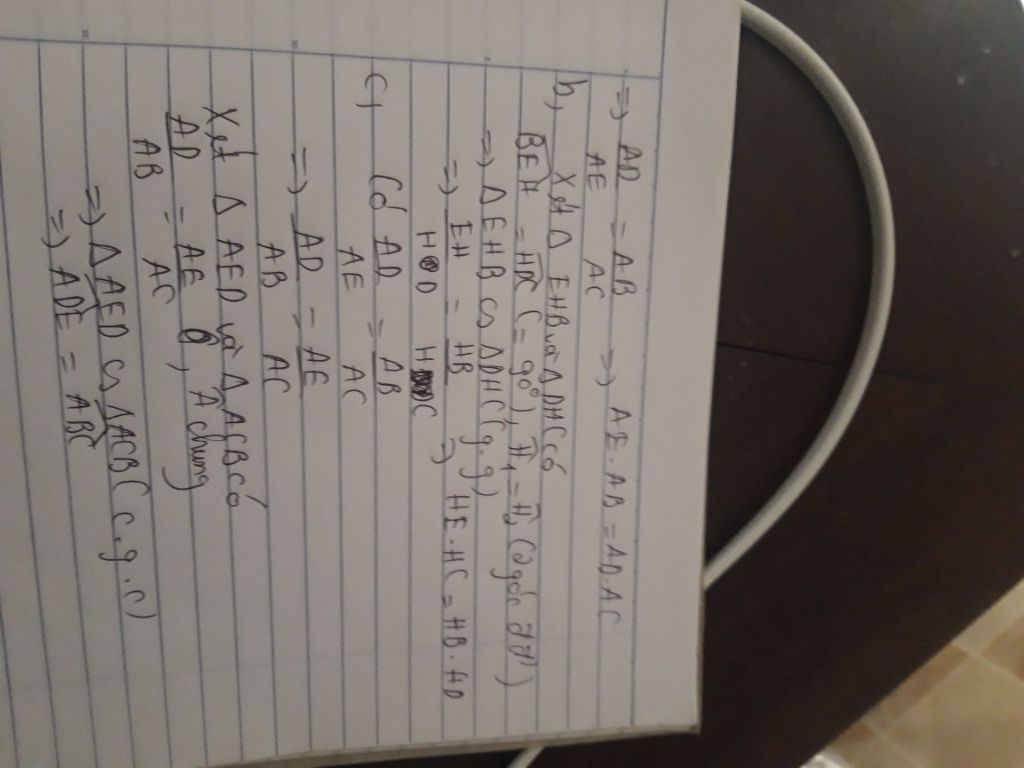 => AD/AE = AB/AC => AE.AB = AD.AC
b, Xét Δ EHB và Δ DHC có
BEH = HDC (= 90°), H₁ = H₂ (2 góc đđ)
=> Δ EHB ∽ Δ DHC (g.g)
=> EH/HD = HB/HC => HE.HC = HB.HD
c, Có AD/AE = AB/AC
=> AD/AB = AE/AC
Xét Δ AED và Δ ACB có
AD/AB = AE/AC, Â chung
=> Δ AED ∽ Δ ACB (c.g.c)
=> ADE = ABC